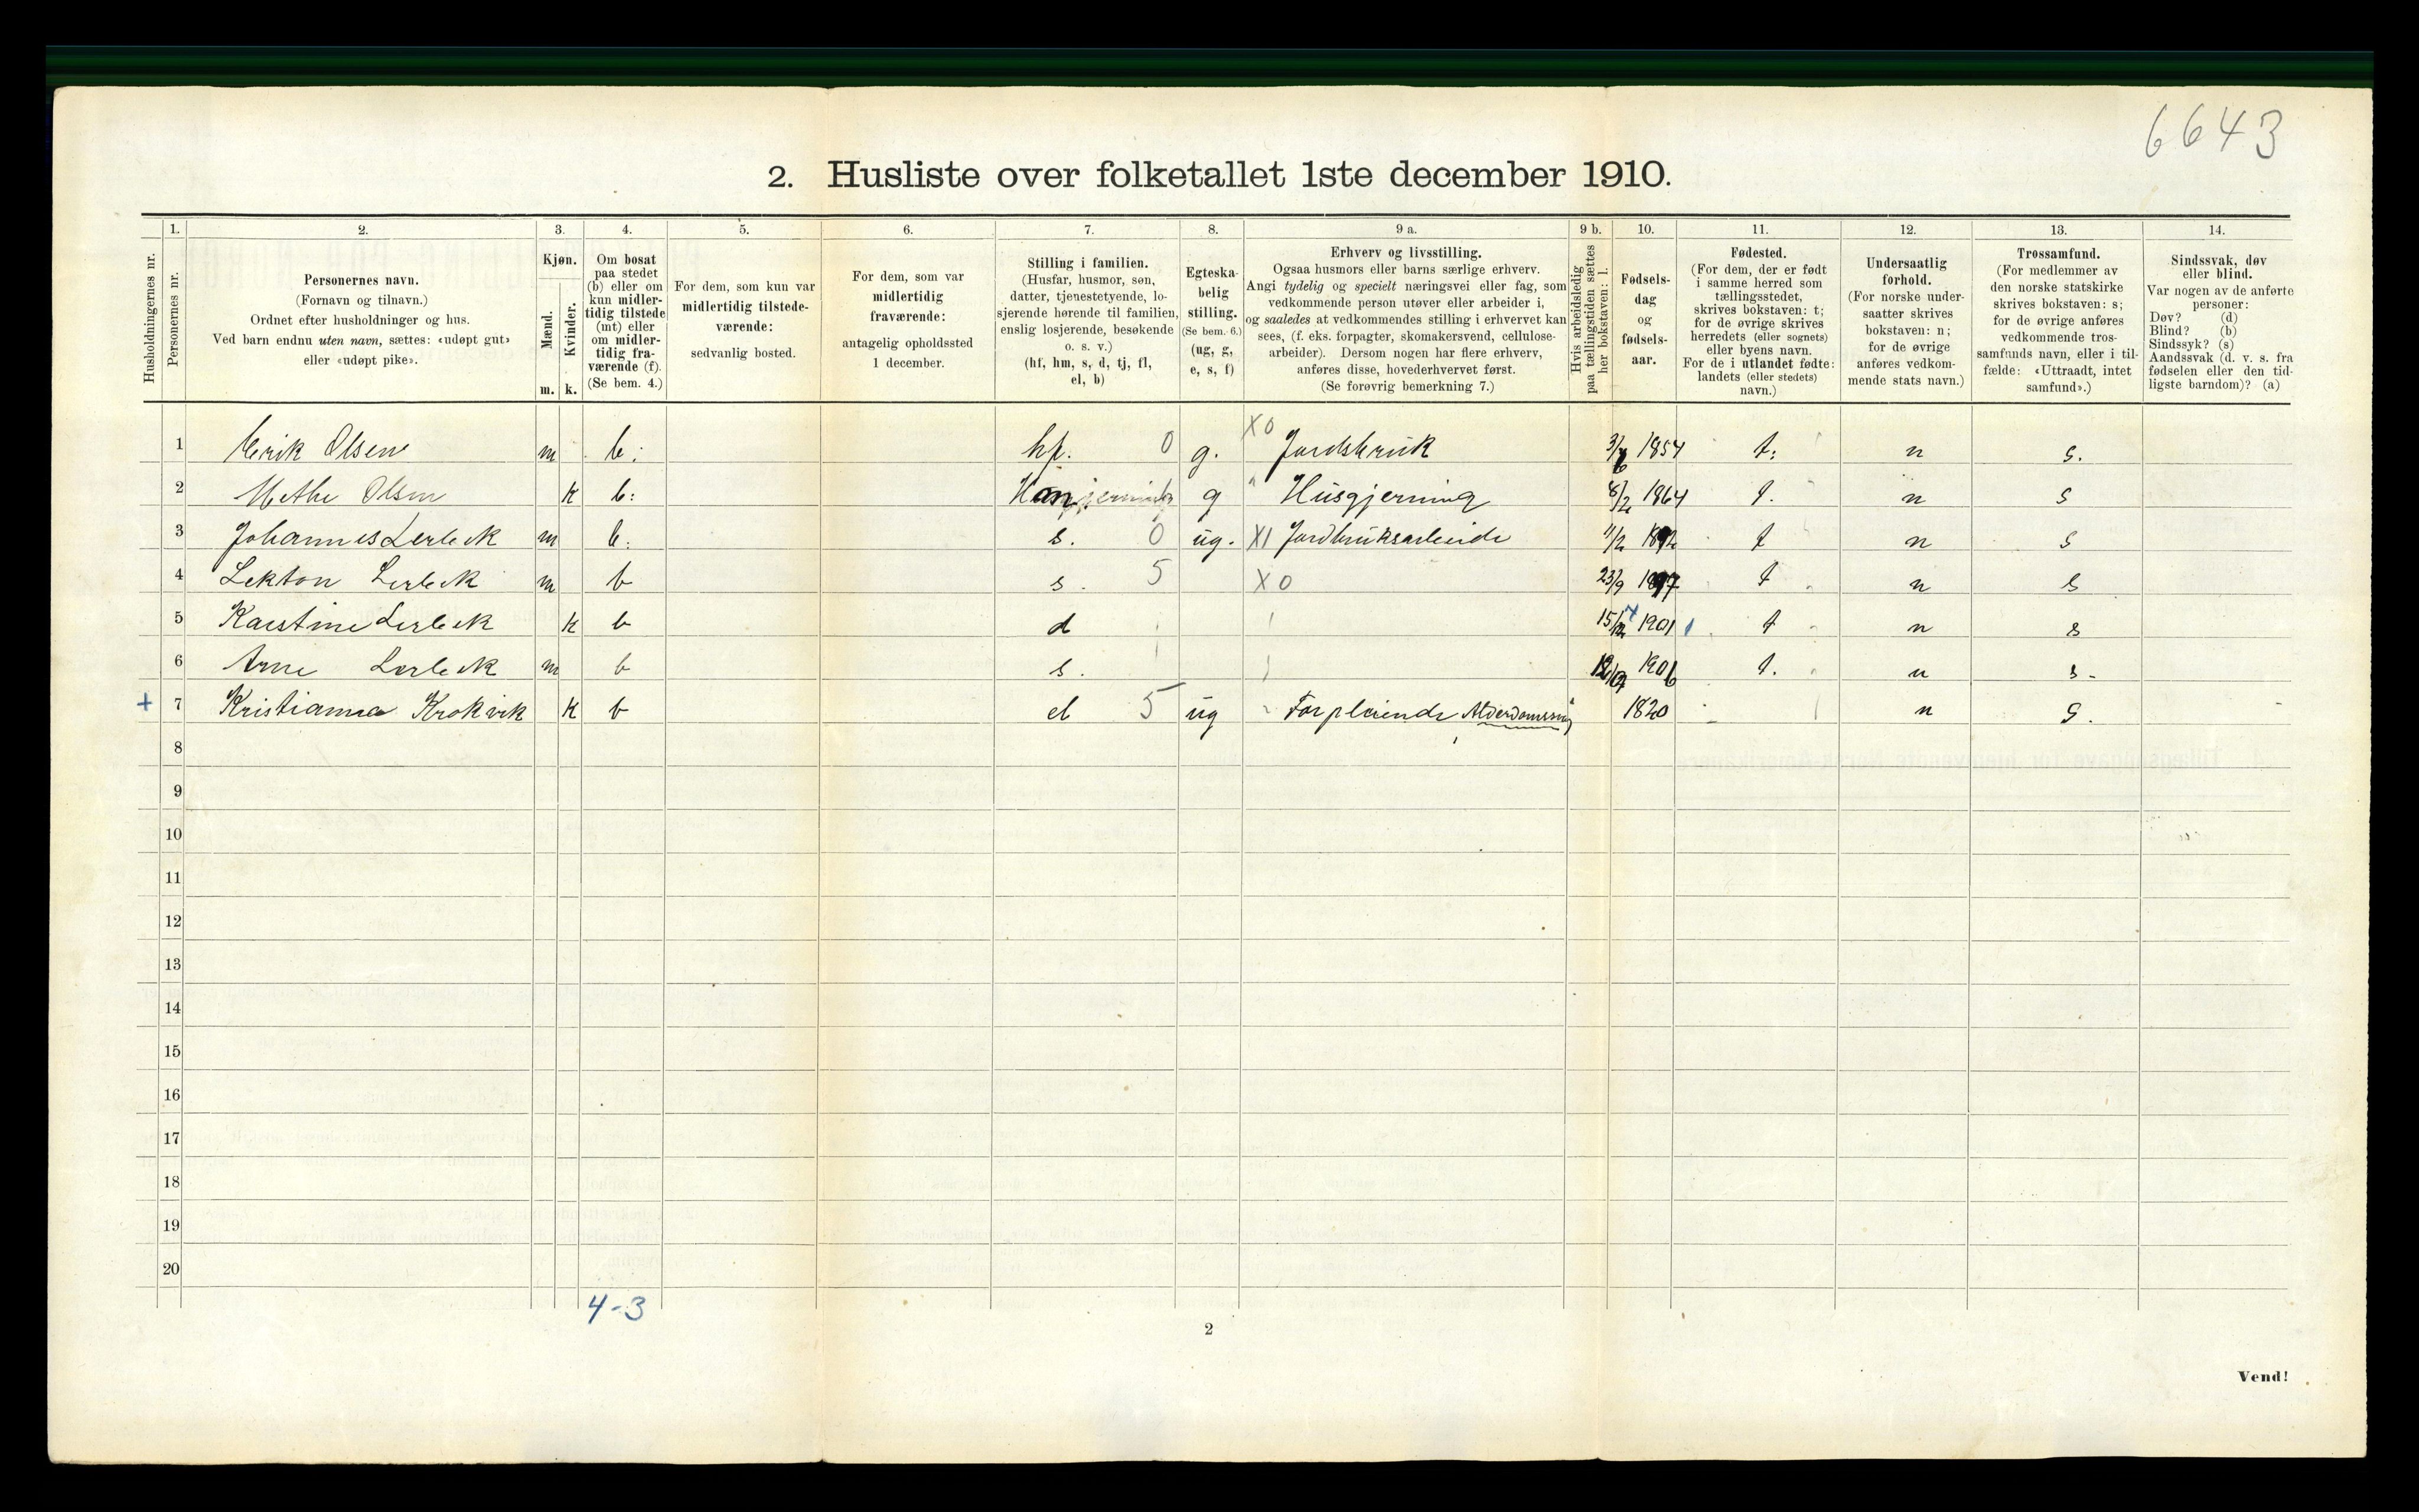 6643
2. Husliste over folketallet 1ste december 1910.
Husholdningernes nr.
1.
Personernes nr.
2.
Personernes navn.
(Fornavn og tilnavn.)
Ordnet efter husholdninger og hus.
Ved barn endnu uten navn, sættes: «udøpt gut»
eller «udøpt pike».
3.
Kjøn.
Mænd.
Kvinder.
m. k.
4.
Om bosat
paa stedet
(b) eller om
kun midler-
tidig tilstede
(mt) eller
om midler-
tidig fra-
værende (f).
(Se bem. 4.)
5.
For dem, som kun var
midlertidig tilstede-
værende:
sedvanlig bosted.
6.
For dem, som var
midlertidig
fraværende:
antagelig opholdssted
1 december.
7.
Stilling i familien.
(Husfar, husmor, søn,
datter, tjenestetyende, lo-
sjerende hørende til familien,
enslig losjerende, besøkende
o. s. v.)
(hf, hm, s, d, tj, fl,
el, b)
8.
Egteska-
belig
stilling.
(Se bem. 6.)
(ug, g,
e, s, f)
9 a.
Erhverv og livsstilling.
Ogsaa husmors eller barns særlige erhverv.
Angi tydelig og specielt næringsvei eller fag, som
vedkommende person utøver eller arbeider i,
og saaledes at vedkommendes stilling i erhvervet kan
sees, (f. eks. forpagter, skomakersvend, cellulose-
arbeider). Dersom nogen har flere erhverv,
anføres disse, hovederhvervet først.
(Se forøvrig bemerkning 7.)
9 b.
Hvis arbeidsledig
paa tællingstiden sættes
her bokstaven: l.
10.
Fødsels-
dag
og
fødsels-
aar.
11.
Fødested.
(For dem, der er født
i samme herred som
tællingsstedet,
skrives bokstaven: t;
for de øvrige skrives
herredets (eller sognets)
eller byens navn.
For de i utlandet fødte:
landets (eller stedets)
navn.)
12.
Undersaatlig
forhold.
(For norske under-
saatter skrives
bokstaven: n;
for de øvrige
anføres vedkom-
mende stats navn.)
13.
Trossamfund.
(For medlemmer av
den norske statskirke
skrives bokstaven: s;
for de øvrige anføres
vedkommende tros-
samfunds navn, eller i til-
fælde: «Uttraadt, intet
samfund».)
14.
Sindssvak, døv
eller blind.
Var nogen av de anførte
personer:
Døv? (d)
Blind? (b)
Sindssyk? (s)
Aandssvak (d. v. s. fra
fødselen eller den tid-
ligste barndom)? (a)
1 Erik Olsen m b: hf. 0 g. X0 Jordsbruk 1854 t: n s.
2 Methe Olsen k b: g Husgjerning 8/2 1864 t. n s
3 Johannes Lerbek m b: s. 0 ug. X1 Jordbruksarbeide 11/2 t n s
4 Lekton Lerbek m b s. 5 X0 23/9 t n s
5 Karstine Lerbek k b d 1901 t n s
6 Arne Lerbek m b s. 1906 t. n s.
+ 7 Kristianna Krokvik k b el 5 ug Forpleiende 1820 n s.
8
9
10
11
12
13
14
15
16
17
18
19
20
4-3
2
Vend!